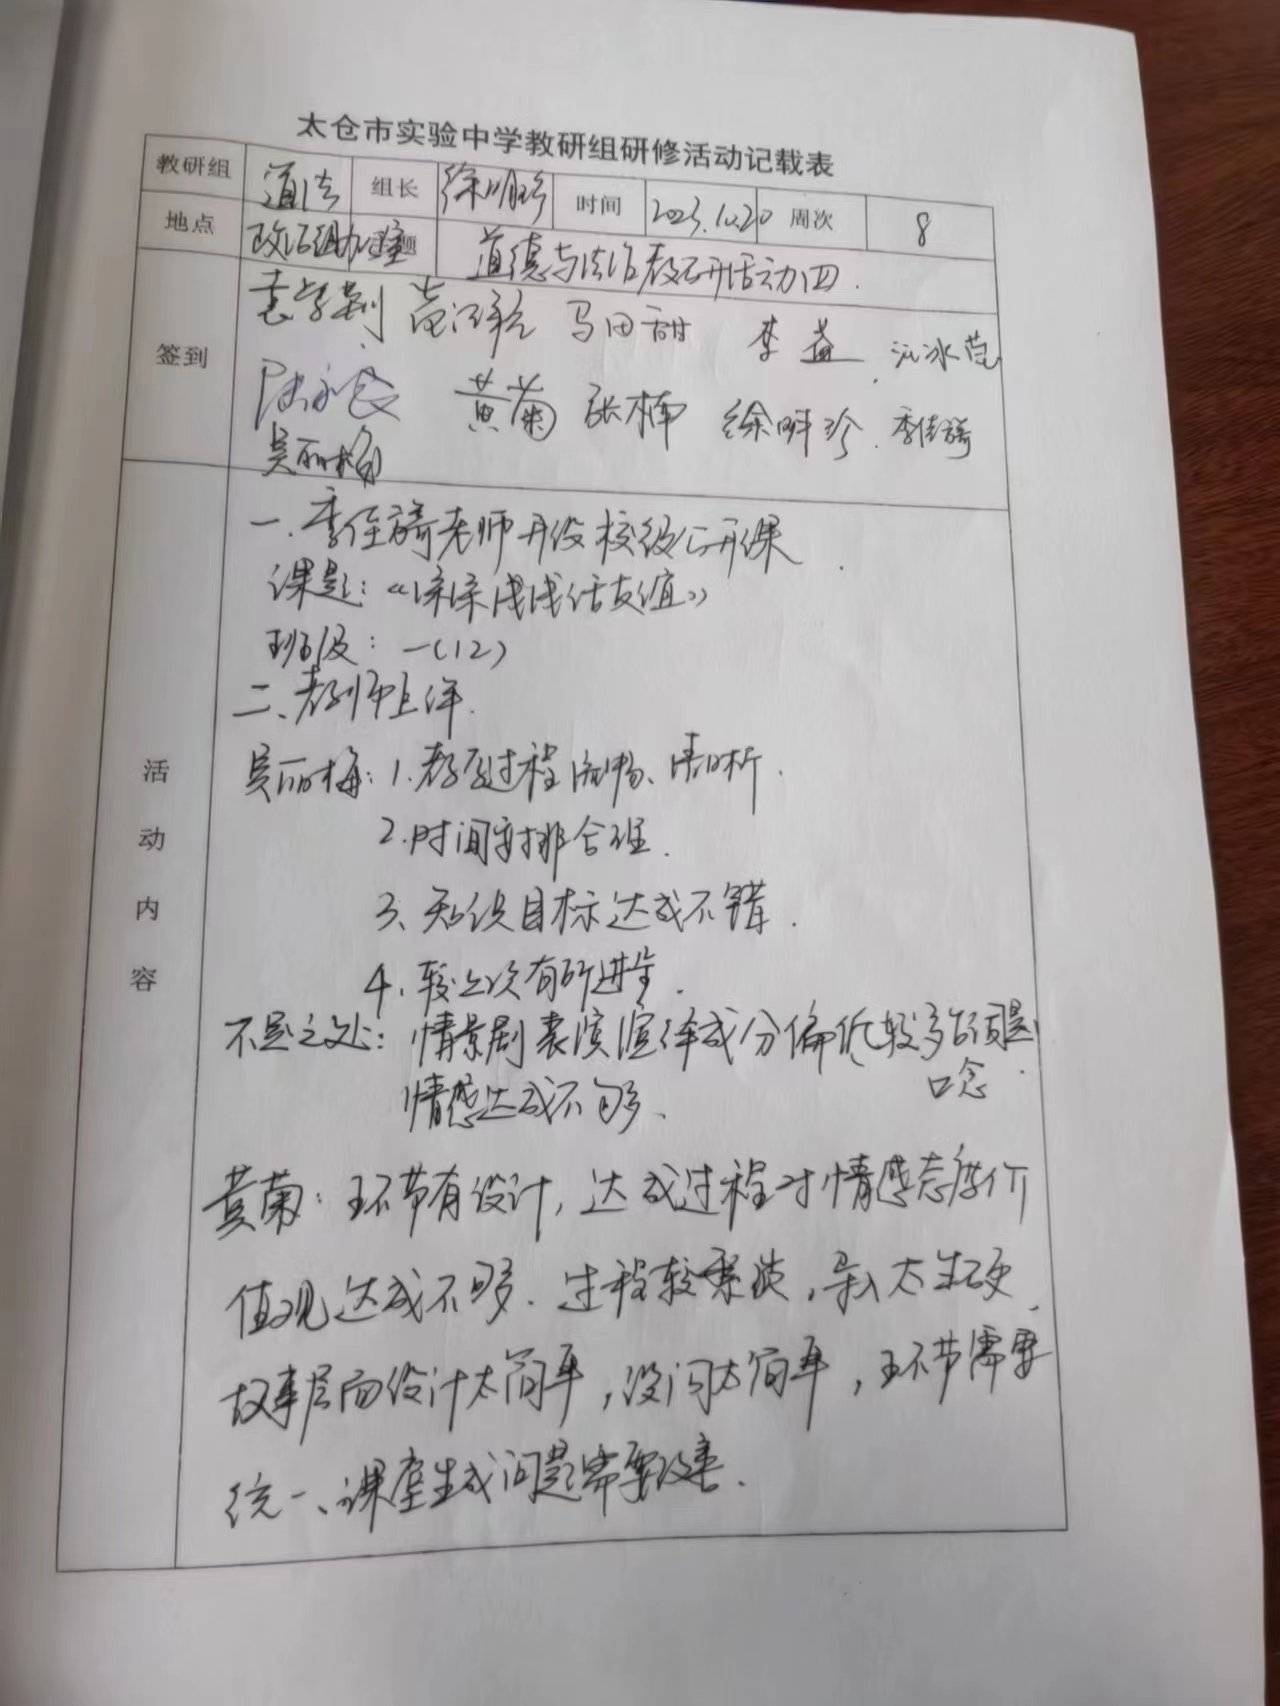 太仓市实验中学教研组研修活动记载表
教研组 道法 组长 徐明珍 时间 2023.10.20 周次 8
地点 政治组办公室 题 道德与法治教研活动四.
签到
马田甜 李益
黄菊 张楠 徐明珍. 季佳琦
吴丽梅
活动内容
一.季佳琦老师开设校级公开课.
课题:《深深浅浅话友谊》
班级: 一(12)
二、教师上评.
吴丽梅: 1.教学过程流畅、清晰.
2.时间安排合理.
3、知识目标达成不错.
4、较上次有所进步.
不足之处: 情景剧表演演绎成分偏低较多的问题
口念
情感达成不够、
黄菊: 环节有设计, 达成过程对情感态度价
值观达成不够. 过程较, 导入太生硬.
故事层面设计太简单, 设问太简单, 环节需要
统一、课堂生成问题需要改善.